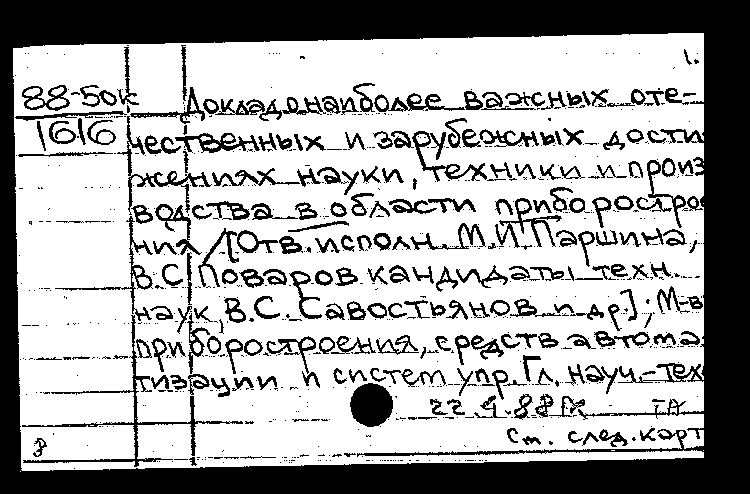 1.
88-50к Доклад о наиболее важных оте-
1616 чественных и зарубежных дости
жениях науки, техники и произ
водства в области приборострое
ния / [Отв. исполн. М.И. Паршина,
В.С. Поваров кандидаты техн.
наук, В.С. Савостьянов и др.]; М-в
приборостроения, средств автома
тизации и систем упр. Гл. науч.-тех
22.9.88
См. след. карт